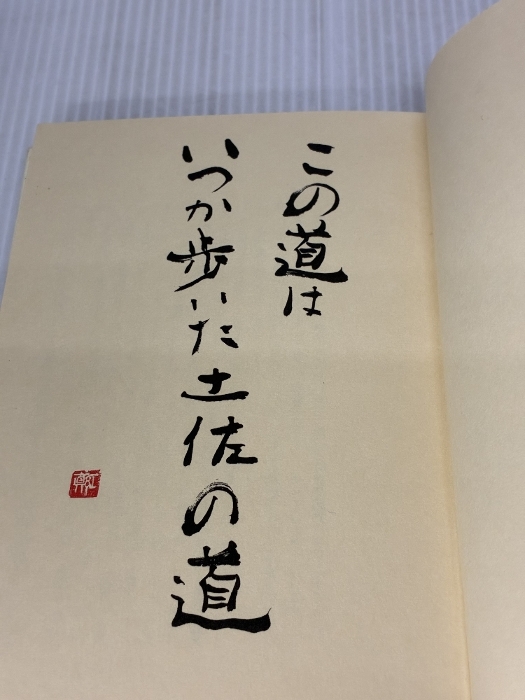 この道は
いつか歩いた土佐の道